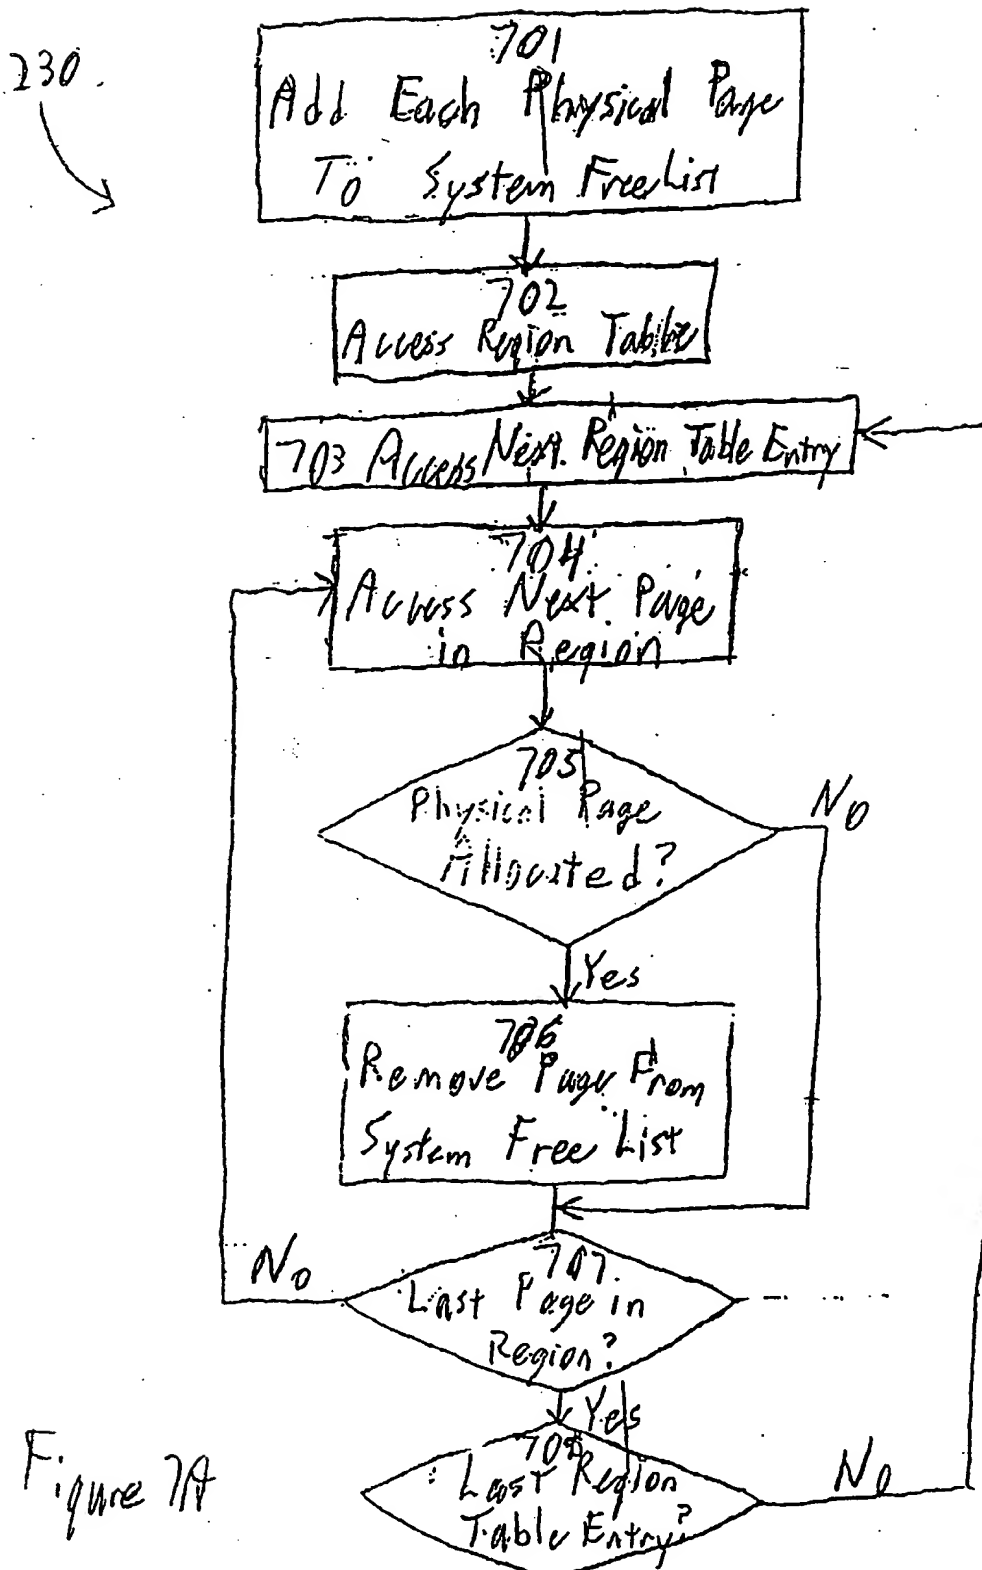 230.
701
Add Each Physical Page
To System Free List
702
Access Region Table
703 Access Next Region Table Entry
704
Access Next Page
in Region
705
Physical Page
Allocated?
No
Yes
706
Remove Page From
System Free List
707
Last Page in
Region?
No
Yes
708
Last Region
Table Entry?
No
Figure 7A